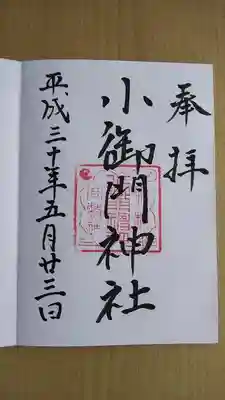 奉拝
小御門神社
平成三十年五月廿三日